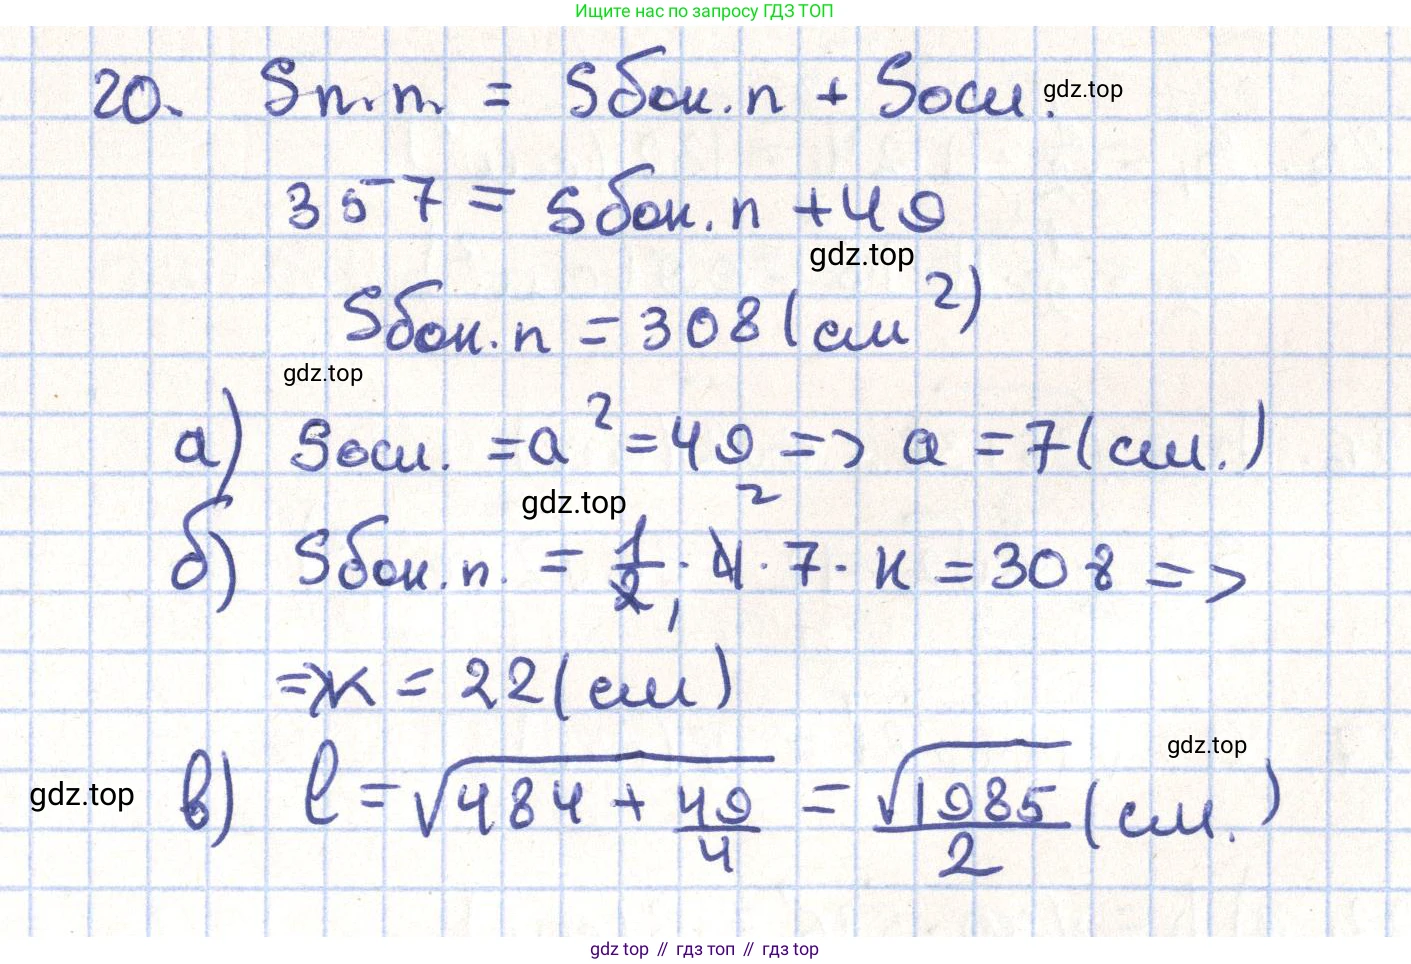 Ищите нас по запросу ГДЗ ТОП
20. Sп.п. = Sбок.п + Sосн. gdz.top
357 = Sбок.п + 49
gdz.top
Sбок.п = 308 (см²)
gdz.top
а) Sосн. = a² = 49 => a = 7 (см.)
gdz.top
б) Sбок.п. = 1/2 · 4 · 7 · к = 308 =>
2
1
=> к = 22 (см)
gdz.top
gdz.top в) l = √(484 + 49/4) = √1985/2 (см.)
gdz top // гдз топ // гдз top